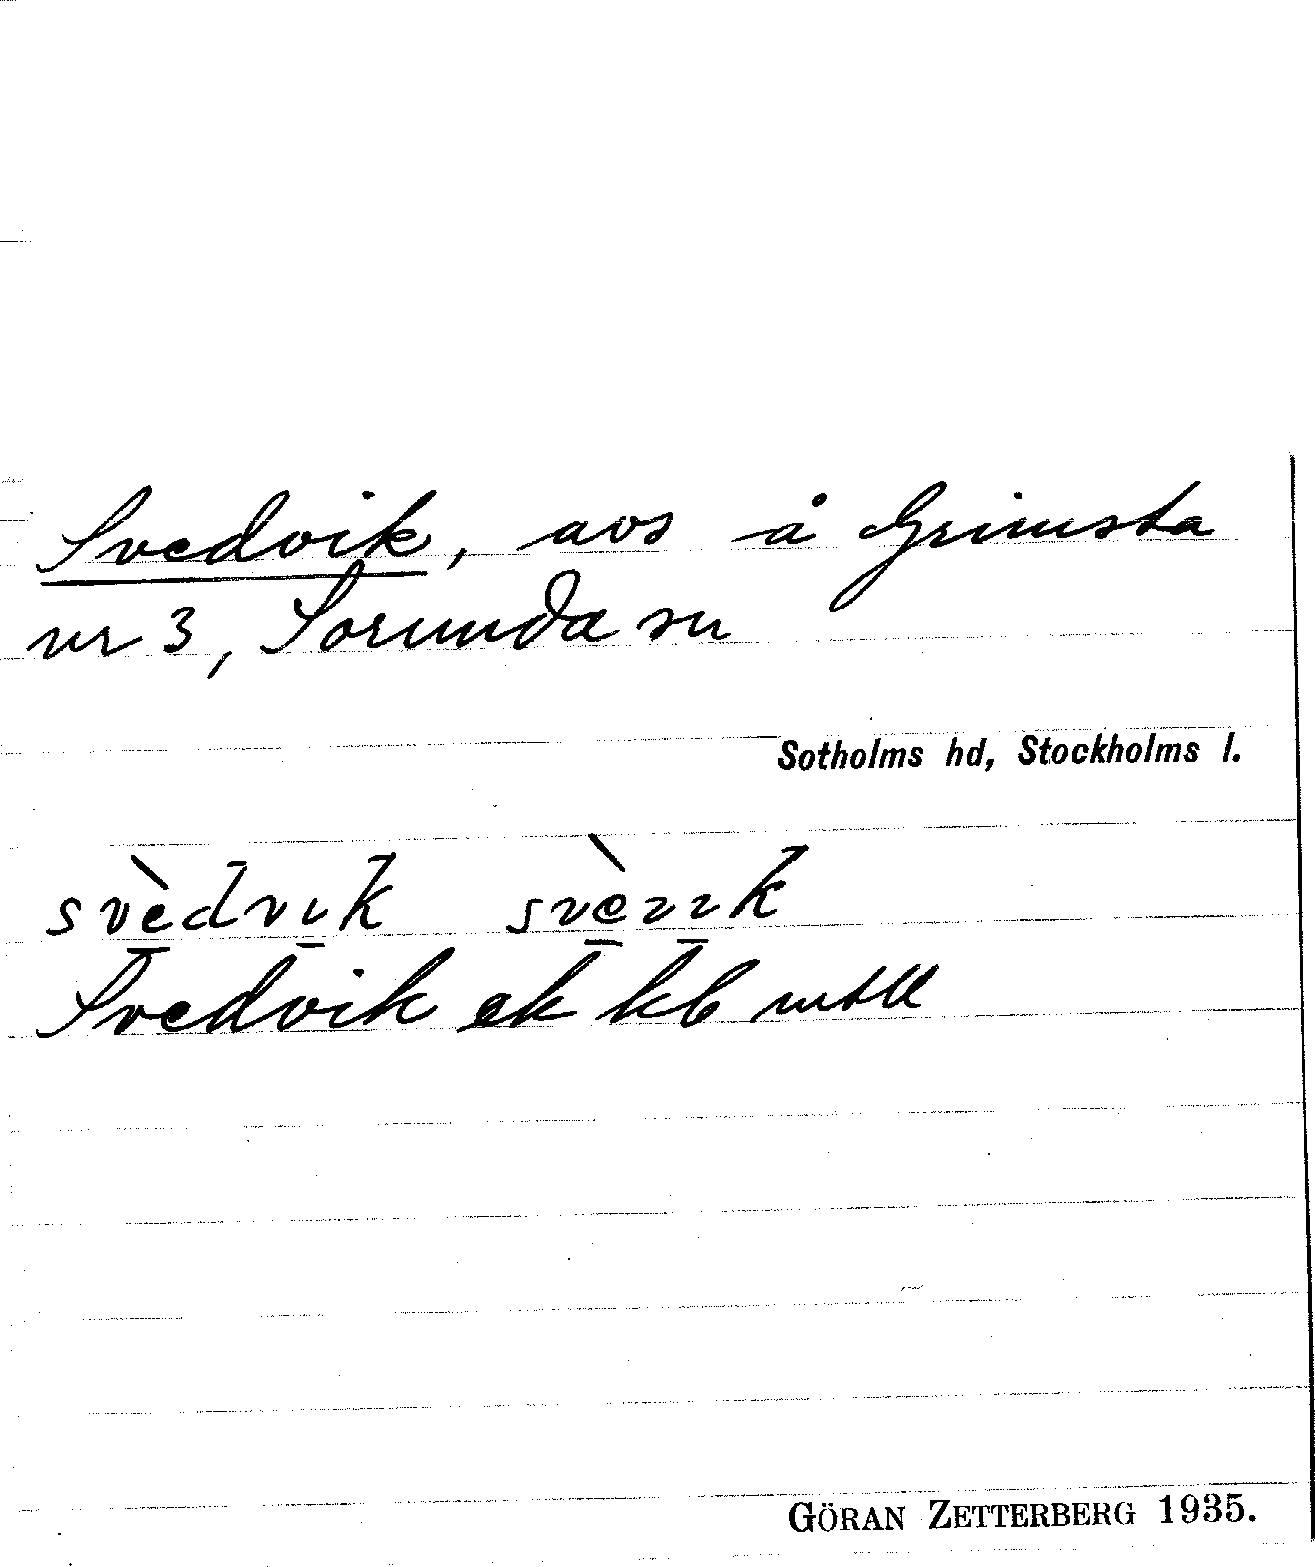 Svedvik, avs å Grimsta
nr 3, Sorunda sn
Sotholms hd, Stockholms l.
svèdvik svèvik
Svedvik ek kb mtll
GÖRAN ZETTERBERG 1935.